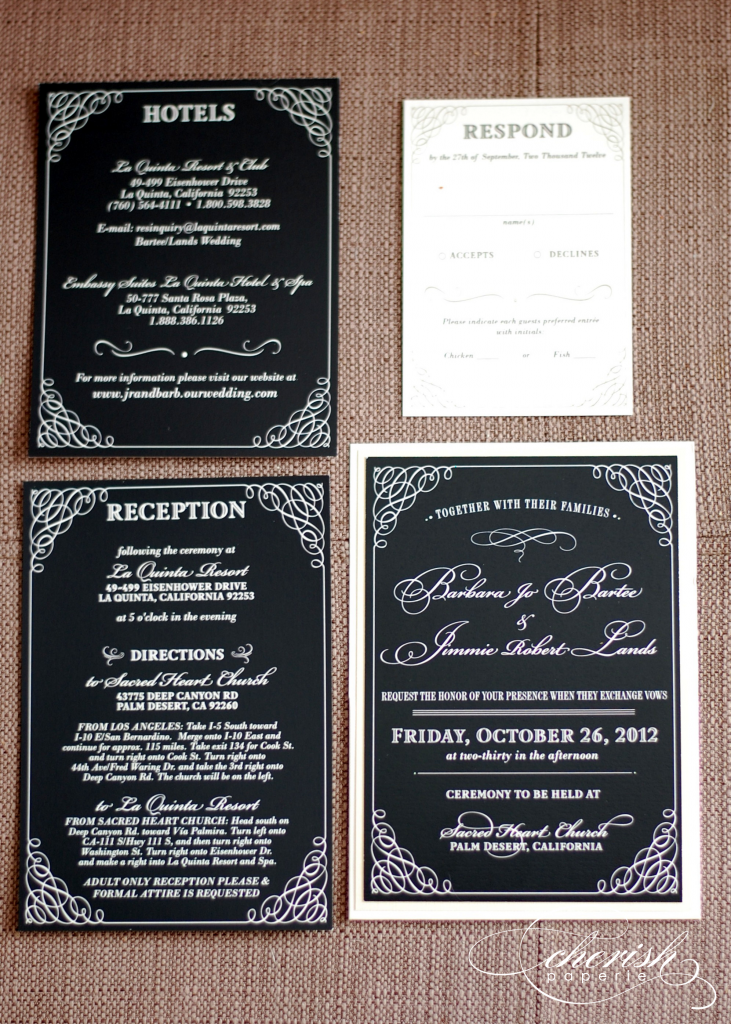 HOTELS
La Quinta Resort & Club
49-499 Eisenhower Drive
La Quinta, California 92253
(760) 564-4111 • 1.800.598.3828
E-mail: resinquiry@laquintaresort.com
Bartee/Lands Wedding
Embassy Suites La Quinta Hotel & Spa
50-777 Santa Rosa Plaza,
La Quinta, California 92253
1.888.386.1126
For more information please visit our website at
www.jrandbarb.ourwedding.com
RESPOND
by the 27th of September, Two Thousand Twelve
name(s)
ACCEPTS DECLINES
Please indicate each guests preferred entrée
with initials.
Chicken ____ or Fish ____
RECEPTION
following the ceremony at
La Quinta Resort
49-499 EISENHOWER DRIVE
LA QUINTA, CALIFORNIA 92253
at 5 o'clock in the evening
DIRECTIONS
to Sacred Heart Church
43775 DEEP CANYON RD
PALM DESERT, CA 92260
FROM LOS ANGELES: Take I-5 South toward
I-10 E/San Bernardino. Merge onto I-10 East and
continue for approx. 115 miles. Take exit 134 for Cook St.
and turn right onto Cook St. Turn right onto
44th Ave/Fred Waring Dr. and take the 3rd right onto
Deep Canyon Rd. The church will be on the left.
to La Quinta Resort
FROM SACRED HEART CHURCH: Head south on
Deep Canyon Rd. toward Vía Palmira. Turn left onto
CA-111 S/Hwy 111 S, and then turn right onto
Washington St. Turn right onto Eisenhower Dr.
and make a right into La Quinta Resort and Spa.
ADULT ONLY RECEPTION PLEASE &
FORMAL ATTIRE IS REQUESTED
TOGETHER WITH THEIR FAMILIES
Barbara Jo Bartee
&
Jimmie Robert Lands
REQUEST THE HONOR OF YOUR PRESENCE WHEN THEY EXCHANGE VOWS
FRIDAY, OCTOBER 26, 2012
at two-thirty in the afternoon
CEREMONY TO BE HELD AT
Sacred Heart Church
PALM DESERT, CALIFORNIA
cherish
paperie